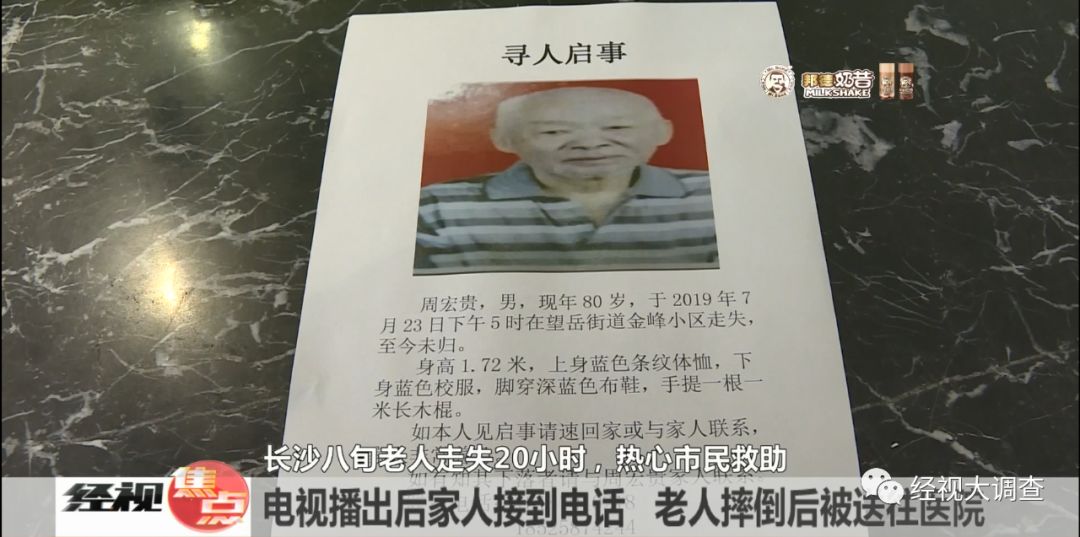 寻人启事
邦德奶昔
MILKSHAKE
周宏贵，男，现年 80 岁，于 2019 年 7
月 23 日下午 5 时在望岳街道金峰小区走失，
至今未归。
身高 1.72 米，上身蓝色条纹体恤，下
身蓝色校服，脚穿深蓝色布鞋，手提一根一
米长木棍。
如本人见启事请速回家或与家人联系，
长沙八旬老人走失20小时，热心市民救助
经视
焦点
电视播出后家人接到电话 老人摔倒后被送往医院
经视大调查